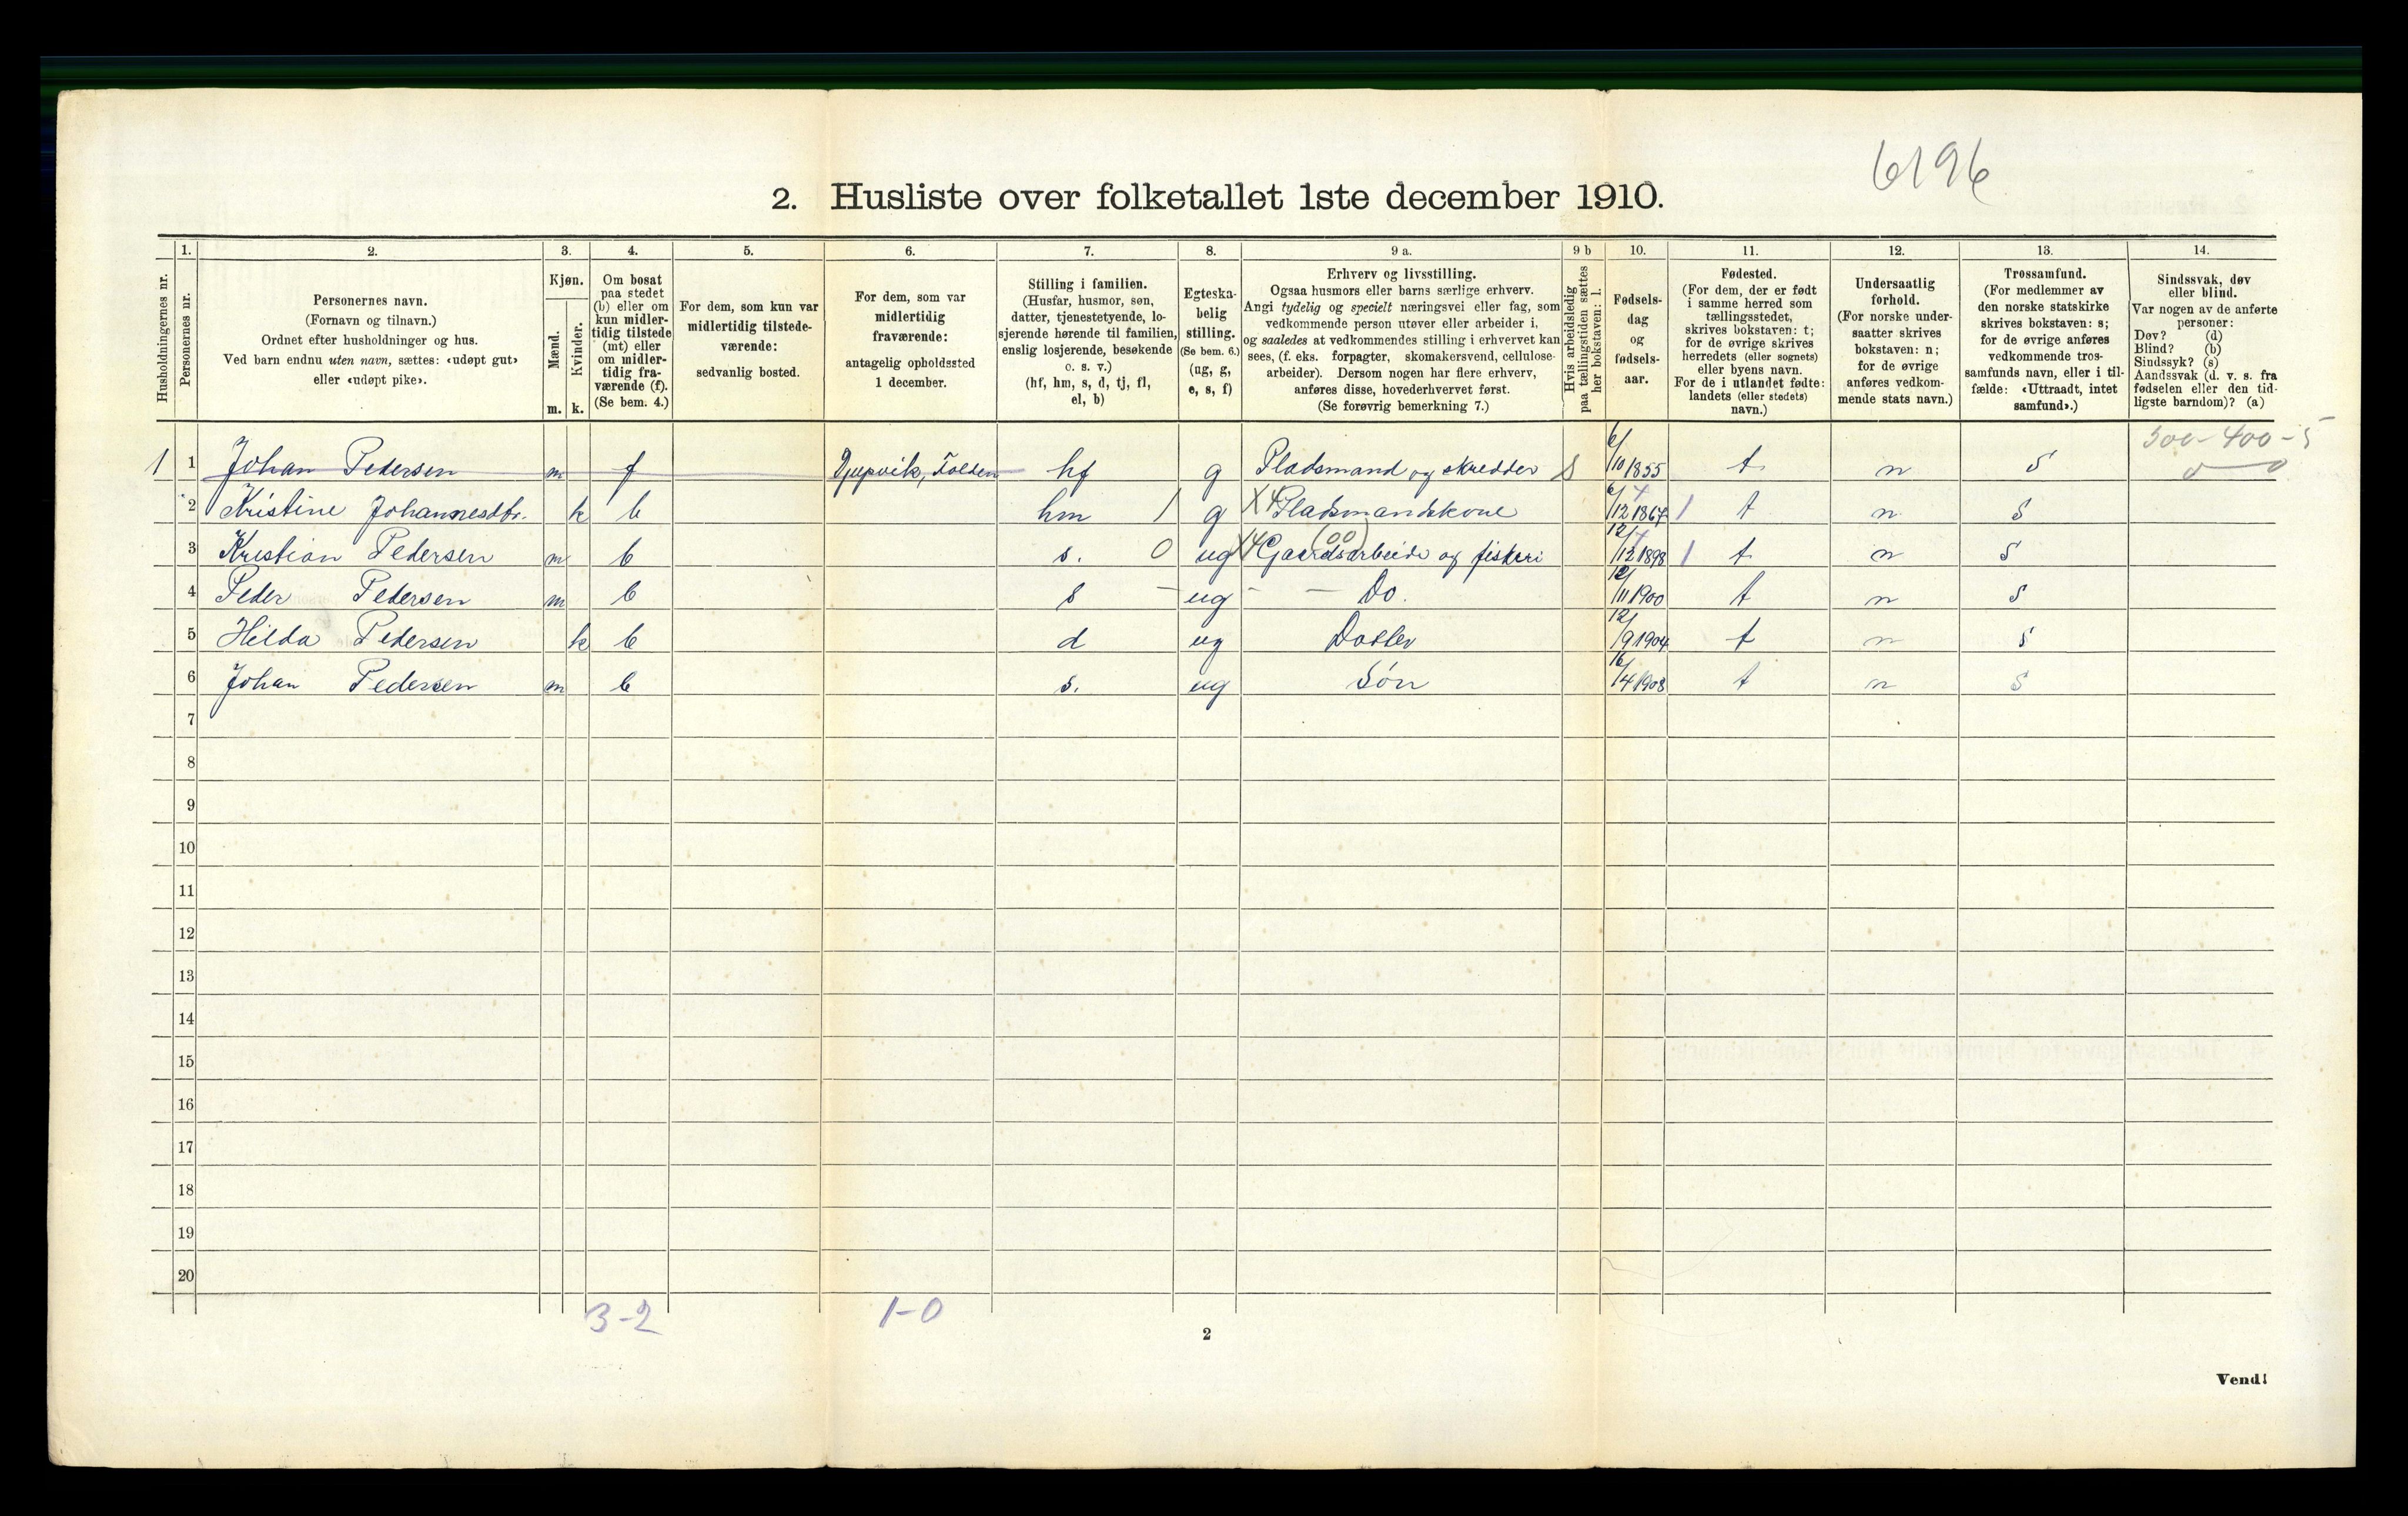 6196
2. Husliste over folketallet 1ste december 1910.
Husholdningernes nr.
1.
Personernes nr.
2.
Personernes navn.
(Fornavn og tilnavn.)
Ordnet efter husholdninger og hus.
Ved barn endnu uten navn, sættes: «udøpt gut»
eller «udøpt pike».
3.
Kjøn.
Mænd.
Kvinder.
m. k.
4.
Om bosat
paa stedet
(b) eller om
kun midler-
tidig tilstede
(mt) eller
om midler-
tidig fra-
værende (f).
(Se bem. 4.)
5.
For dem, som kun var
midlertidig tilstede-
værende:
sedvanlig bosted.
6.
For dem, som var
midlertidig
fraværende:
antagelig opholdssted
1 december.
7.
Stilling i familien.
(Husfar, husmor, søn,
datter, tjenestetyende, lo-
sjerende hørende til familien,
enslig losjerende, besøkende
o. s. v.)
(hf, hm, s, d, tj, fl,
el, b)
8.
Egteska-
belig
stilling.
(Se bem. 6.)
(ug, g,
e, s, f)
9 a.
Erhverv og livsstilling.
Ogsaa husmors eller barns særlige erhverv.
Angi tydelig og specielt næringsvei eller fag, som
vedkommende person utøver eller arbeider i,
og saaledes at vedkommendes stilling i erhvervet kan
sees, (f. eks. forpagter, skomakersvend, cellulose-
arbeider). Dersom nogen har flere erhverv,
anføres disse, hovederhvervet først.
(Se forøvrig bemerkning 7.)
9 b
Hvis arbeidsledig
paa tællingstiden sættes
her bokstaven: l.
10.
Fødsels-
dag
og
fødsels-
aar.
11.
Fødested.
(For dem, der er født
i samme herred som
tællingsstedet,
skrives bokstaven: t;
for de øvrige skrives
herredets (eller sognets)
eller byens navn.
For de i utlandet fødte:
landets (eller stedets)
navn.)
12.
Undersaatlig
forhold.
(For norske under-
saatter skrives
bokstaven: n;
for de øvrige
anføres vedkom-
mende stats navn.)
13.
Trossamfund.
(For medlemmer av
den norske statskirke
skrives bokstaven: s;
for de øvrige anføres
vedkommende tros-
samfunds navn, eller i til-
fælde: «Uttraadt, intet
samfund».)
14.
Sindssvak, døv
eller blind.
Var nogen av de anførte
personer:
Døv? (d)
Blind? (b)
Sindssyk? (s)
Aandssvak (d. v. s. fra
fødselen eller den tid-
ligste barndom)? (a)
300-400-5
0 0
1 1 Johan Pedersen m f Djupvik, Folden hf g Pladsmand og skredder 6/10 1855 t. n s
2 Kristine Johannesdtr. k b hm 1 g X4 Pladsmandskone 6/12 1867 1 t n s
3 Kristian Pedersen m b s. 0 ug X4 Gaardsarbeide (00) og fiskeri 12/12 1898 1 t n s
4 Peder Pedersen m b s - ug - - Do. 12/11 1900 t n s
5 Hilda Pedersen k b d ug Datter 12/9 1904 t n s
6 Johan Pedersen m b s. ug Søn 16/4 1908 t n s
7
8
9
10
11
12
13
14
15
16
17
18
19
20
3-2 1-0
2
Vend!